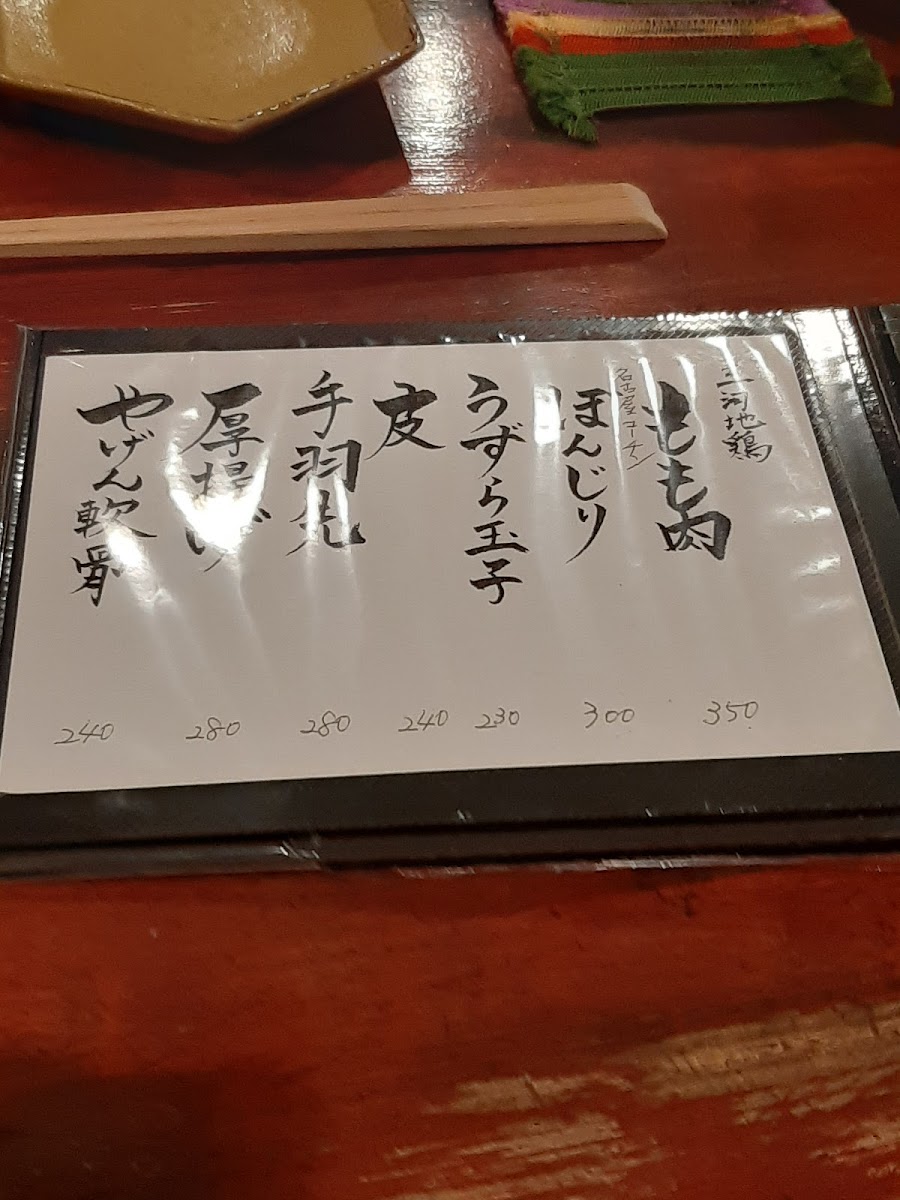 三河地鶏
もも肉
350
名古屋コーチン
ほんじり
300
うずら玉子
230
皮
240
手羽先
280
厚揚げ
280
やげん軟骨
240